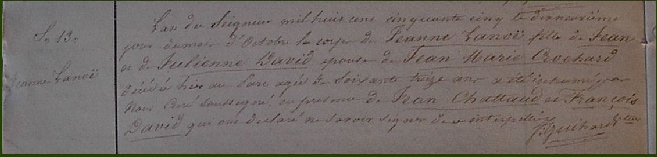 Se 13e
Jeanne Lanoë
L'an du Seigneur mil huit cent cinquante cinq le dixneuvième
jour du mois d'Octobre le corps de Jeanne Lanoë fille de Jean
et de Julienne David épouse de Jean Marie Crochard
décédée hier au Loire agée de soixante treize ans a été inhumé par
Nous Curé soussigné en présence de Jean Chattaud et François
David qui ont déclaré ne savoir signer de ce interpellés